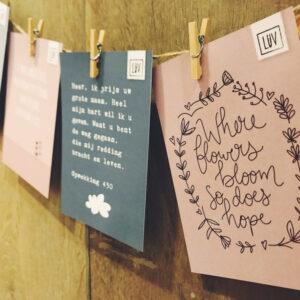 LUV
Heer, ik prijs uw
grote naam. Heel
mijn hart wil ik u
geven. Want u bent
de weg gegaan,
die mij redding
bracht en leven.
Opwekking 430
LUV
Where
flowers
bloom
so does
hope